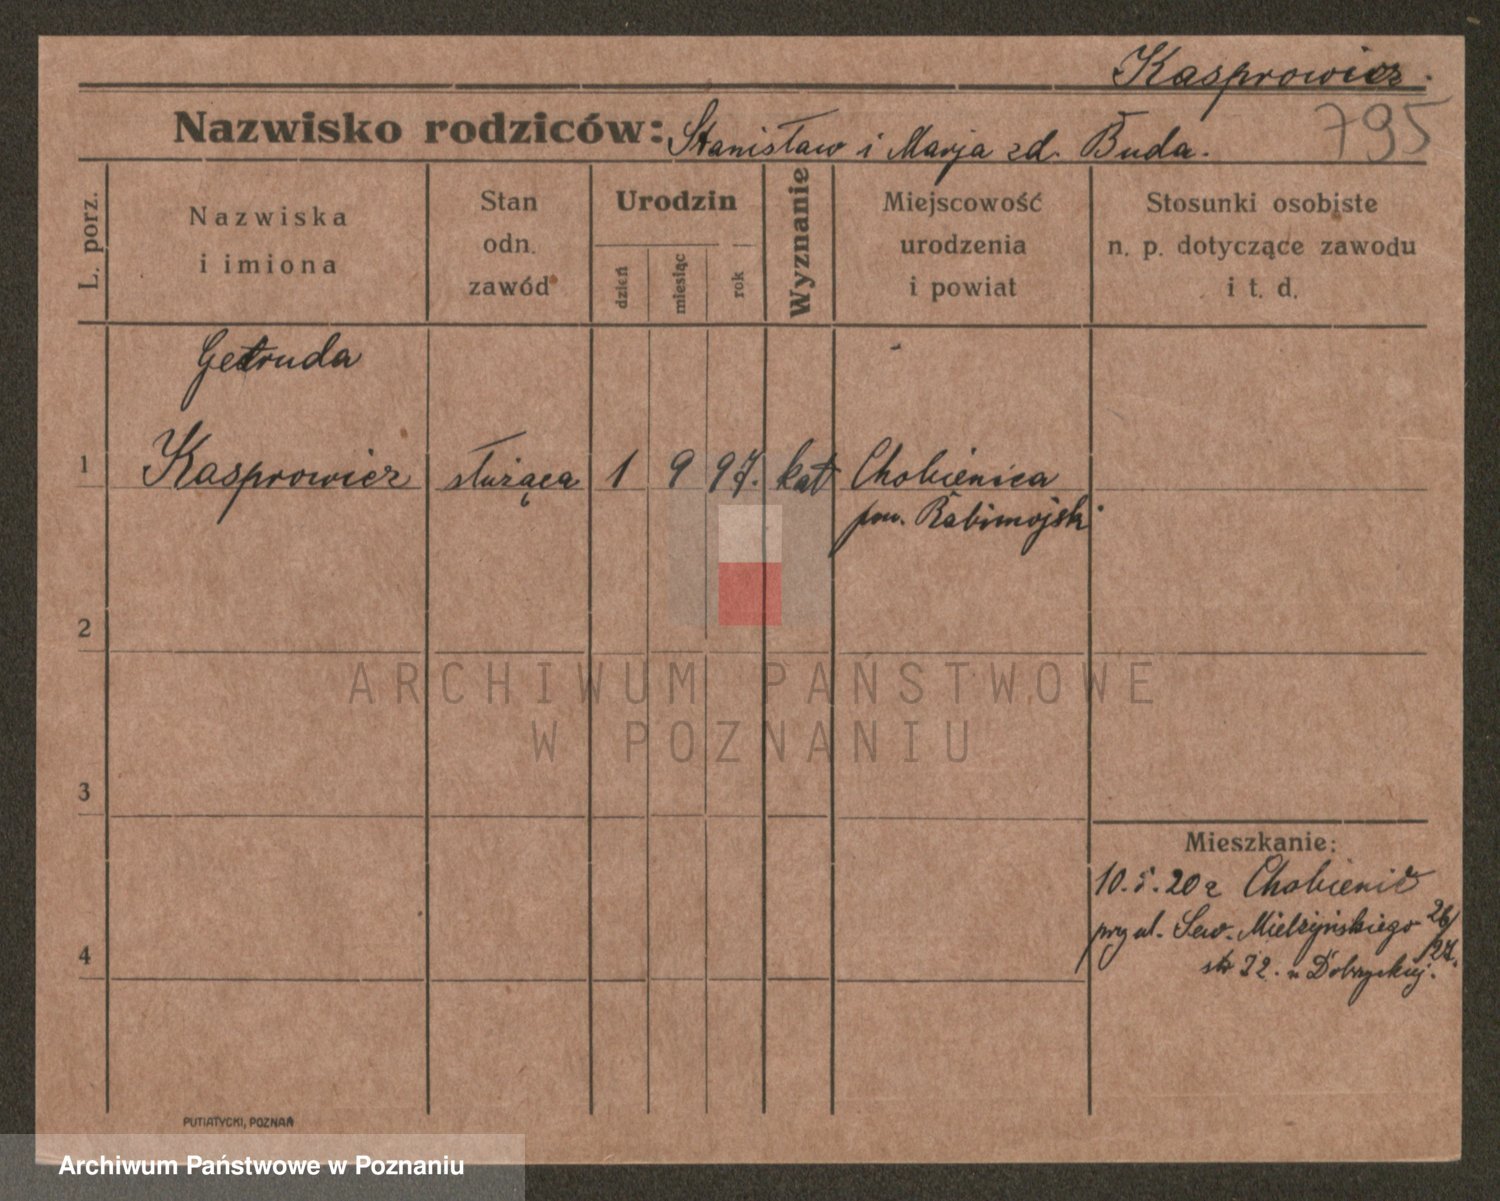 Kasprowicz.
795
Nazwisko rodziców: Stanisław i Marja zd. Buda.
L. porz.
Nazwiska
i imiona
Stan
odn.
zawód
Urodzin
dzień
miesiąc
rok
Wyznanie
Miejscowość
urodzenia
i powiat
Stosunki osobiste
n. p. dotyczące zawodu
i t. d.
Getruda
1 Kasprowicz służąca 1 9 97. kat Chobienica
pow. Babimojski
2
3
4
Mieszkanie:
10.5.20 z Chobienic
przy ul. Sew. Mielżyńskiego 26/
27.
u Dobrzyckiej.
PUTIATYCKI, POZNAŃ
ARCHIWUM PAŃSTWOWE
W POZNANIU
Archiwum Państwowe w Poznaniu